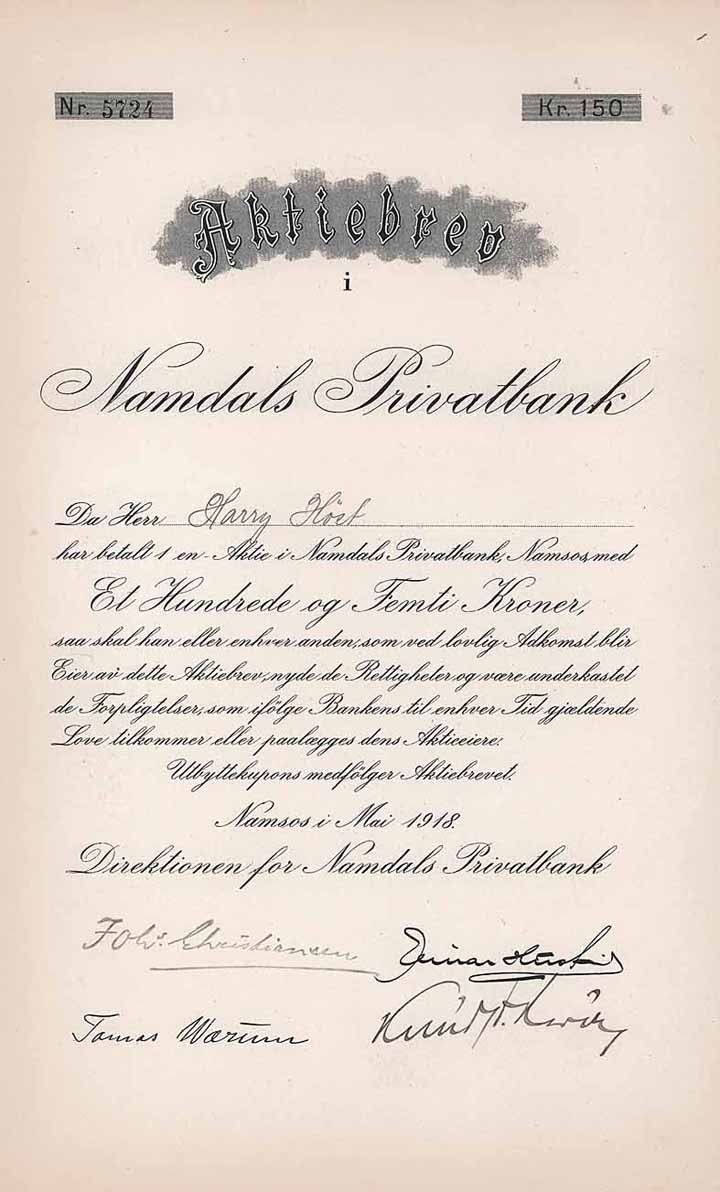 Nr. 5724
Kr. 150
Aktiebrev
i
Namdals Privatbank
Da Herr Harry Höst
har betalt 1 en Aktie i Namdals Privatbank, Namsos, med
Et Hundrede og Femti Kroner,
saa skal han eller enhver anden, som ved lovlig Adkomst blir
Eier av dette Aktiebrev, nyde de Rettigheter og være underkastet
de Forpligtelser, som ifölge Bankens til enhver Tid gjældende
Love tilkommer eller paalægges dens Aktieeiere.
Utbyttekupons medfölger Aktiebrevet.
Namsos i Mai 1918.
Direktionen for Namdals Privatbank
Johs. Christiansen
Tomas Wærum